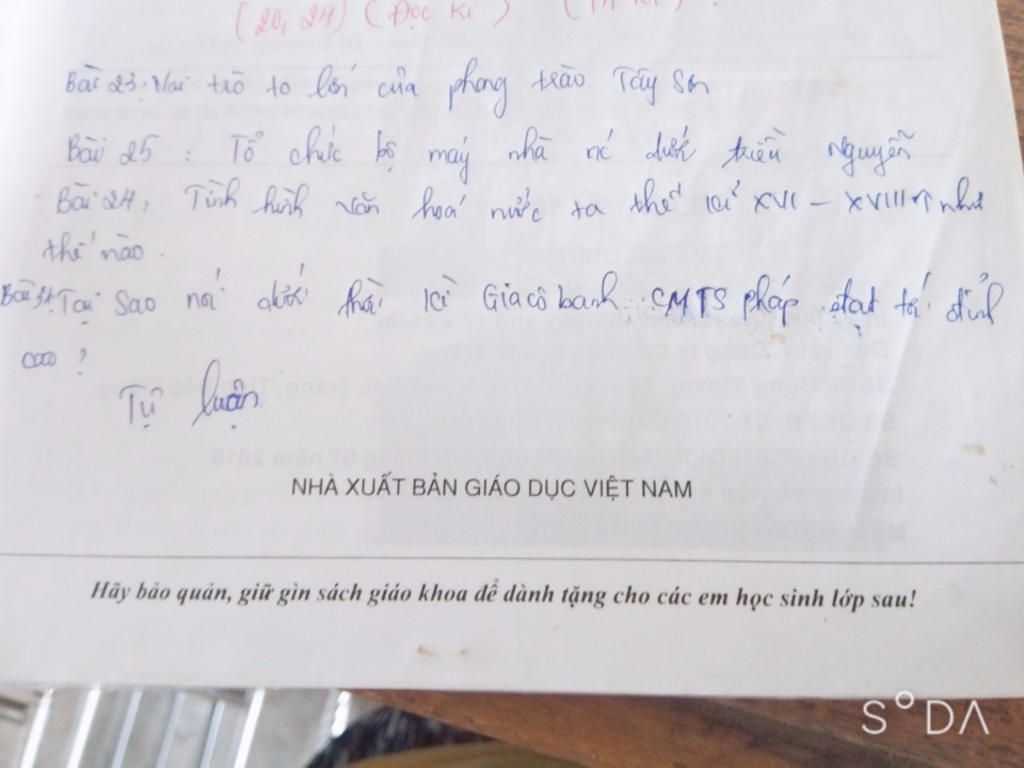 (20, 24) (Đọc kĩ)
Bài 23: Vai trò to lớn của phong trào Tây Sơn
Bài 25 : Tổ chức bộ máy nhà nc dưới triều Nguyễn
Bài 24, Tình hình văn hoá nước ta thế kỉ XVI – XVIII như
thế nào.
Bài 31: Tại sao nói dưới thời kì Giacôbanh CMTS pháp đạt tới đỉnh
cao ?
Tự luận
NHÀ XUẤT BẢN GIÁO DỤC VIỆT NAM
Hãy bảo quản, giữ gìn sách giáo khoa để dành tặng cho các em học sinh lớp sau!
SODA